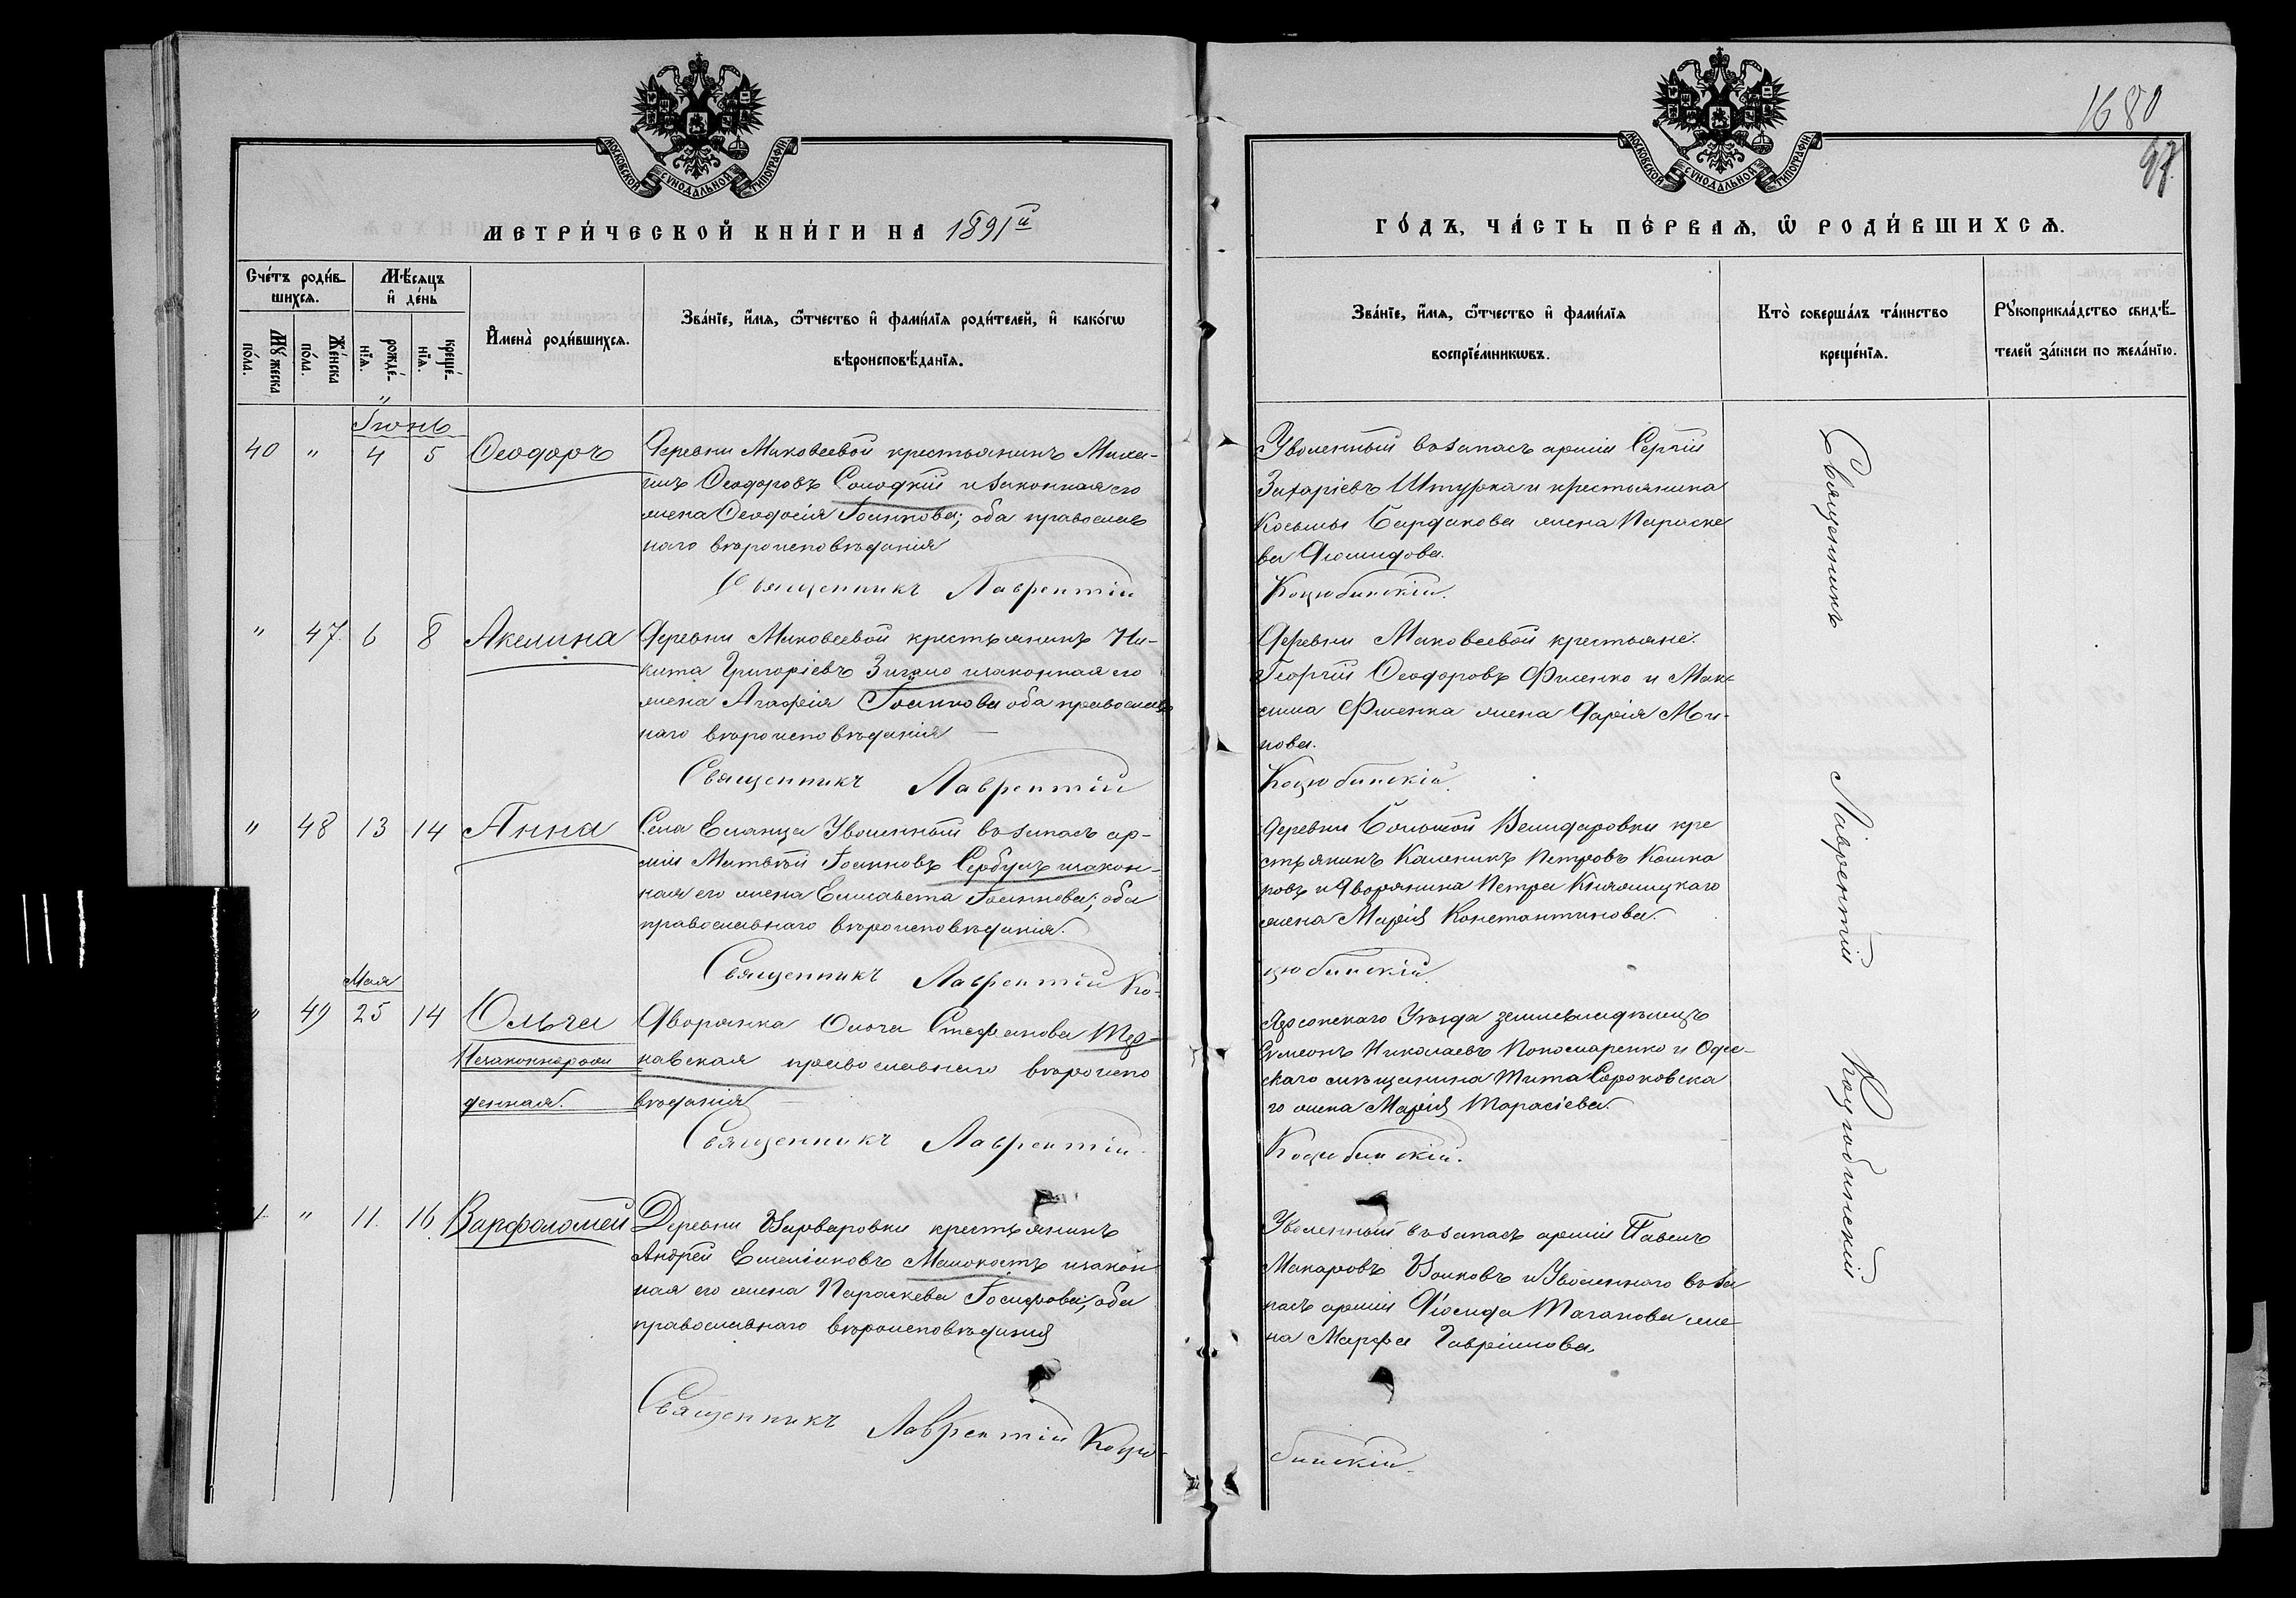 МОСКОВСКОЙ СѴНОДАЛЬНОЙ ТИПОГРАФІИ
МЕТРИ́ЧЕСКОЙ КНИ́ГИ НА 1891й
Сче́тъ роди́в-
шихсѧ.
Мꙋ́жеска
по́ла.
Же́нска
по́ла.
Мѣ́сѧцъ
и҆ де́нь
рожде́-
нїѧ.
креще́-
нїѧ.
И҆мена̀ роди́вшихсѧ.
Зва́нїе, и҆́мѧ, ѻ҆́тчество и҆ фами́лїѧ роди́телей, и҆ како́гѡ
вѣроисповѣ́данїѧ.
Іюнь
40 " 4 5 Ѳеодоръ
Деревни Маковеевой крестьянинъ Миха-
илъ Ѳеодоровъ Солодкій и законная его
жена Ѳеодосія Іоаннова; оба православ
наго вѣроисповѣданія
Священникъ Лаврентій
" 47. 6 8 Акелина
Деревни Маковеевой крестьянинъ Ни-
кита Григоріевъ изаконная его
жена Агафія Іоаннова оба православ
наго вѣроисповѣданія
Священникъ Лаврентій
" 48 13 14 Анна
Села Еланца Уволенный въ запасъ ар-
міи Матвѣй Іоанновъ Сербулъ изакон-
ная его жена Елисавета Іоаннова; оба
православнаго вѣроисповѣданія.
Священникъ Лаврентій Ко-
Мая
" 49 25 14 Ольга
Незаконнорож
денная.
Дворянка Ольга Стефанова Тер-
навская православнаго вѣроиспо
вѣданія
Священникъ Лаврентій
" 11. 16. Варфоломей
Деревни Варваровки крестьянинъ
Андрей Емеліановъ изакон
ная его жена Параскева Іосифова; оба
православнаго вѣроисповѣданія
Священникъ Лаврентій Коцю-
1680
97.
МОСКОВСКОЙ СѴНОДАЛЬНОЙ ТИПОГРАФІИ
ГО́ДЪ, ЧА́СТЬ ПЕ́РВАѦ, Ѽ РОДИ́ВШИХСѦ.
Зва́нїе, и҆́мѧ, ѻ҆́тчество и҆ фами́лїѧ
воспрїе́мникѡвъ.
Кто̀ соверша́лъ та́инство
креще́нїѧ.
Рꙋкоприкла́дство свидѣ́-
телей за́писи по жела́нїю.
Уволенный въ запасъ арміи Сергій
Захаріевъ Штурка и крестьянина
Косьмы Бардакова жена Параске
ва Діомидова.
Коцюбинскій.
Деревни Маковеевой крестьяне:
Георгій Ѳеодоровъ Фисенко и Мак-
сима Фисенка жена Дарія Ми-
нова.
Коцюбинскій.
Деревни Большой Велидаровки кре
стьянинъ Каленикъ Петровъ Кашка
ровъ и Дворянина Петра
жена Марія Константинова.
цюбинскій.
Херсонскаго Уѣзда земледѣлецъ
Симеонъ Николаевъ Пономаренко и Одес-
скаго мѣщанина Тита Сороковска
го жена Марія Тарасіева.
Коцюбинскій.
Уволенный въ запасъ арміи Павелъ
Макаровъ Волковъ и Уволеннаго въ за
пасъ арміи Діомида Таганова же
на Марфа Гавріилова.
бинскій.
Священникъ Лаврентій Коцюбинскій